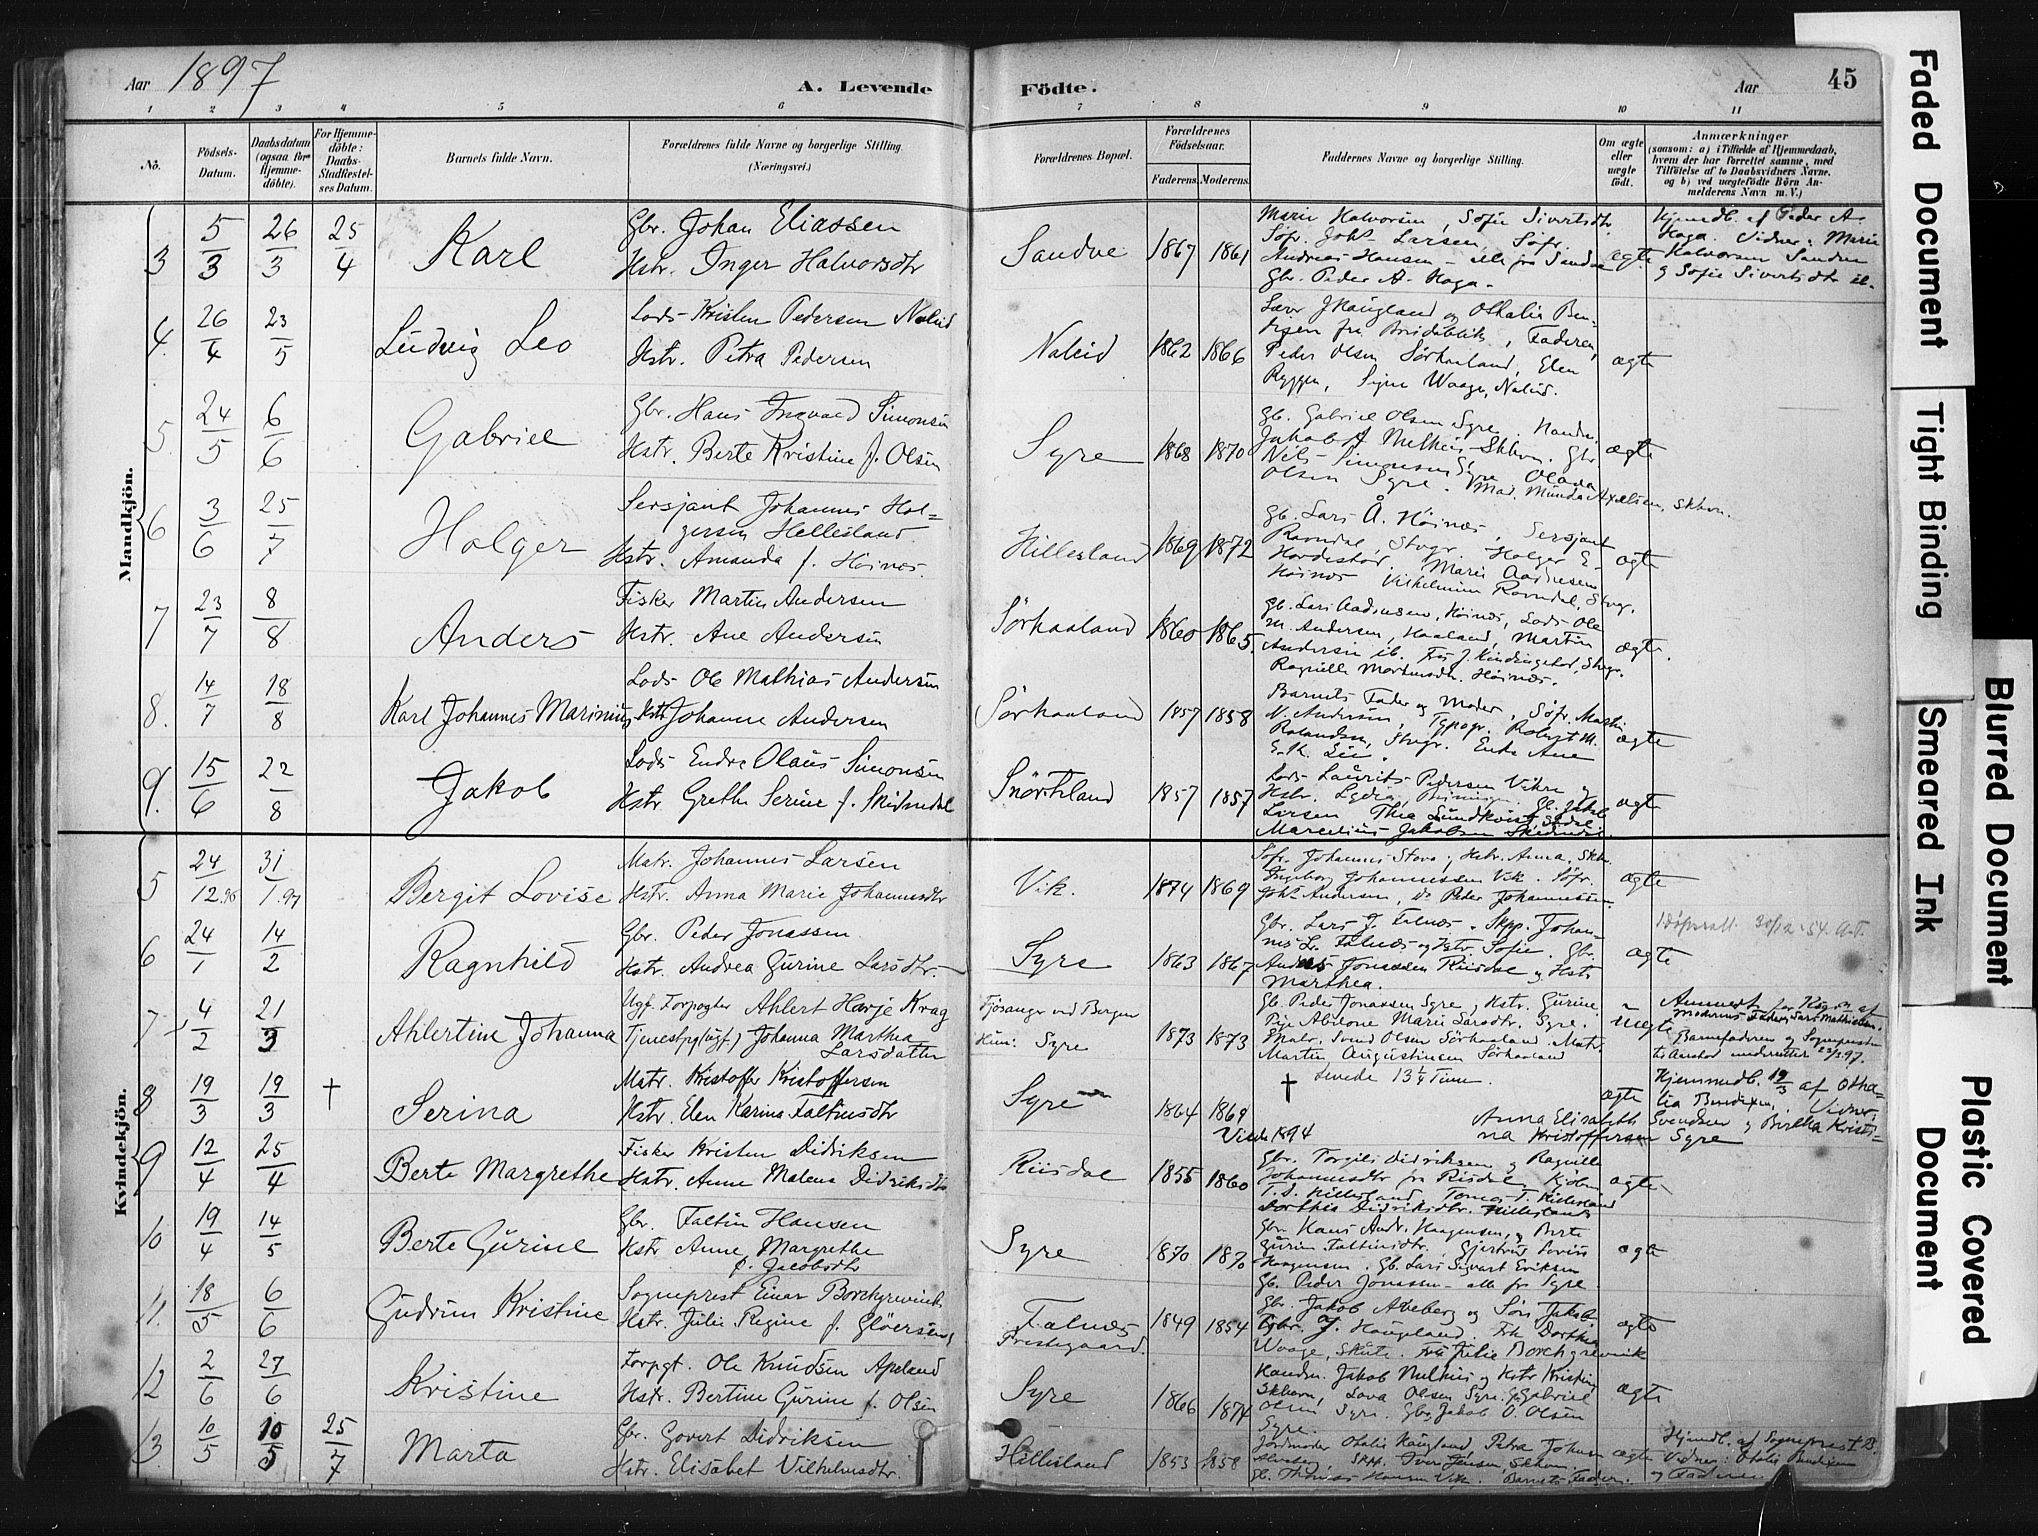 Aar 1897
A. Levende
Födte.
Aar
45
1 2 3 4 5 6 7 8 9 10 11
No.
Födsels-Datum.
Daabsdatum (ogsaa for Hjemme-döbte).
For Hjemme-döbte: Daabs-Stadfæstel-ses Datum.
Barnets fulde Navn.
Forældrenes fulde Navne og borgerlige Stilling.
(Næringsvei.)
Forældrenes Bopæl.
Forældrenes Födselsaar.
Faderens. Moderens.
Faddernes Navne og borgerlige Stilling.
Om ægte eller uægte födt.
Anmærkninger
(saasom: a) i Tilfælde af Hjemmedaab,
hvem der har forrettet samme, med
Tilföielse af to Daabsvidners Navne,
og b) ved uægtefödte Börn An-
melderens Navn m. V.)
Mandkjön.
3 5/3 26/3 25/4 Karl
Gbr. Johan Eliassen
Hstr. Inger Halvorsdtr
Sandve 1867 1861
Marie Halvorsen, Sofie Sivertsdtr.
Söfr. Johs Larsen, Söfr.
Andreas Hansen - alle fra Sandve
Gbr. Peder A. Haga.
ægte
Hjemdb. af Peder A.
Haga. Vidner: Marie
Halvorsen Sandve
og Sofie Sivertsdtr ib.
4. 26/4 23/5 Ludvig Leo
Lods Kristen Pedersen Naleid
Hstr. Petra Pedersen
Naleid 1862 1866
Peder Olsen Sörhaaland, Elen
Ryggen, Signe Waage, Naleid.
ægte
5. 24/5 6/6 Gabriel
Gbr. Hans Ingvald Simonsen
Hstr. Berte Kristine f. Olsen
Syre 1868 1870
Gb. Gabriel Olsen Syre. Handm.
Jakob A Melhus Skhvn. Gbr
Nils Simonsen Syre, Olava
Olsen Syre. Mad. Munda Axelsen, Skhvn.
ægte
6 3/6 25/7 Holger
Sersjant Johannes Hol-
gersen Hellesland.
Hstr. Amanda f. Höines.
Hillesland 1869 1872
Gb. Lars Å. Höines, Sersjant
Ravndal, Stvgr. Holger E.
Marie Aadnesen
Höines Vilhelmine Ravndal, Stvgr.
ægte
7 23/7 8/8 Anders
Fisker Martin Andersen
Hstr. Ane Andersen
Sörhaaland 1860 1865.
Gb. Lars Aadnesen, Höines, Lods Ole
M. Andersen, Haaland, Martin
Andersen ib.
Ragnille Mortensdtr. Höines.
ægte.
8. 14/7 18/8 Karl Johannes Marinius
Lods Ole Mathias Andersen
Hstr Johanne Andersen
Sörhaaland 1857 1858
Barnets Fader og Moder, Söfr. Martin
N. Andersen, Typogr. Robert M.
Rolandsen, Stvgr. Enke Ane
ægte
9. 15/6 22/8 Jakob
Lods Endre Olaus Simonsen
Hstr Grethe Serine f. Skidnedal
Snörteland 1857 1857
Lods Laurits Pedersen Vikre og
Hstr. Lydia, Gb. Jakob
Larsen Thea Lundkvist,
Marcelius Jakobsen
ægte
Kvindekjön.
5 24/12.96 31/1.97 Bergit Lovise
Matr. Johannes Larsen
Hstr. Anna Marie Johannesdtr
Vik. 1874 1869
Söfr. Johannes Stava, Hstr. Anna, Skhvn.
Ingeborg Johannessen Vik. Söfr.
Johs Andersen, Do Peder Johannessen.
ægte
6 24/1 14/2 Ragnhild
Gbr. Peder Jonassen
Hstr. Andrea Gurine Larsdtr.
Syre 1863 1867
Gbr. Lars J. Falnes. Skpp. Johan-
nes L. Falnes og Hstr. Sofie. Gbr.
Anders Jonassen Riisdal og Hstr
Marthea.
ægte
30/12-54. A.T.
7 4/2 21/3 Ahlertine Johanna
Ugf. Forpagter Ahlert Harje Krag
Tjenestepg (ugf) Johanna Marthea
Larsdatter
Fjösanger ved Bergen
Hun: Syre
1873 1873
Gb. Peder Jonassen Syre, Hstr. Gurine.
Pige Abelone Marie Larsdtr. Syre.
Malr. Svend Olsen Sörhaaland. Matr.
Martin Augustinsen Sörhaaland
uægte
Anmeldt for Ksgn af
Moderens Fader, Lars Mathiesen.
Barnefaderen og Sogneprest
underrettet
8 19/3 19/3 † Serina
Matr. Kristoffer Kristoffersen
Hstr. Elen Karina Faltinsdtr
Syre 1864 1869
Viede 1894
† Levede 13 1/4 Time.
ægte
Hjemmedb. 19/3 af Otha-
lia Bendixen. Vidner:
Anna Elisabeth Svendsen og Birtha Kristi-
na Kristoffersen Syre
9 12/4 25/4 Berte Margrethe
Fisker Kristen Didriksen
Hstr. Anne Malena Didriksdtr
Riisdal 1855 1860
Gbr. Torgils Didriksen og Ragnille
Johannesdtr fra Risdal, Kjöbm
T. S. Hillesland, Tomas T. Hillesland
Dorthea Didriksdtr. Hillesland
ægte
10 19/4 14/5 Berte Gurine
Gbr. Faltin Hansen
Hstr Anne Margrethe
f. Jacobsdtr
Syre 1870 1870
Gbr. Hans Andr. Haagensen, og Berte
Gurine Faltinsdtr. Gjertrud Lovise
Haagensen. Gb. Lars Sigvart Eriksen
Gb. Peder Jonassen - alle fra Syre
ægte
11. 18/5 6/6 Gudrun Kristine
Sogneprest Einar Borchgrevink
Hstr. Julie Regine f. Glöersen
Falnes
Prestegaard.
1849 1854
Gbr. Jakob
Gbr. J. Haugeland. Frk Dorthea
Waage, Skute. Frk Julie Borchgrevink
ægte
12 2/6 27/6 Kristine
Forpgt. Ole Knudsen Apeland
Hstr. Bertine Gurine f. Olsen
Syre 1866 1874
Handm. Jakob Melhus og Hstr Kristine
Skhavn, Lava Olsen Syre. Gb Gabriel
Olsen Syre. Gbr Jakob O. Olsen
Syre.
ægte
13. 10/5 10/5 25/7 Marta
Gbr. Govert Didriksen
Hstr. Elisabet Vilhelmsdtr.
Hillesland 1853 1858
Jordmoder Othalie Haugland, Petra Johnsen
Skhvn. Iver Jensen Skhvn.
Gb. Thomas Hansen Vik. Barnets Fader.
ægte
Hjemdb. af Sogneprest B.
Vidner: Othalie Bendixen
og Faderen
Faded Document
Tight Binding
Blurred Document
Smeared Ink
Plastic Covered Document